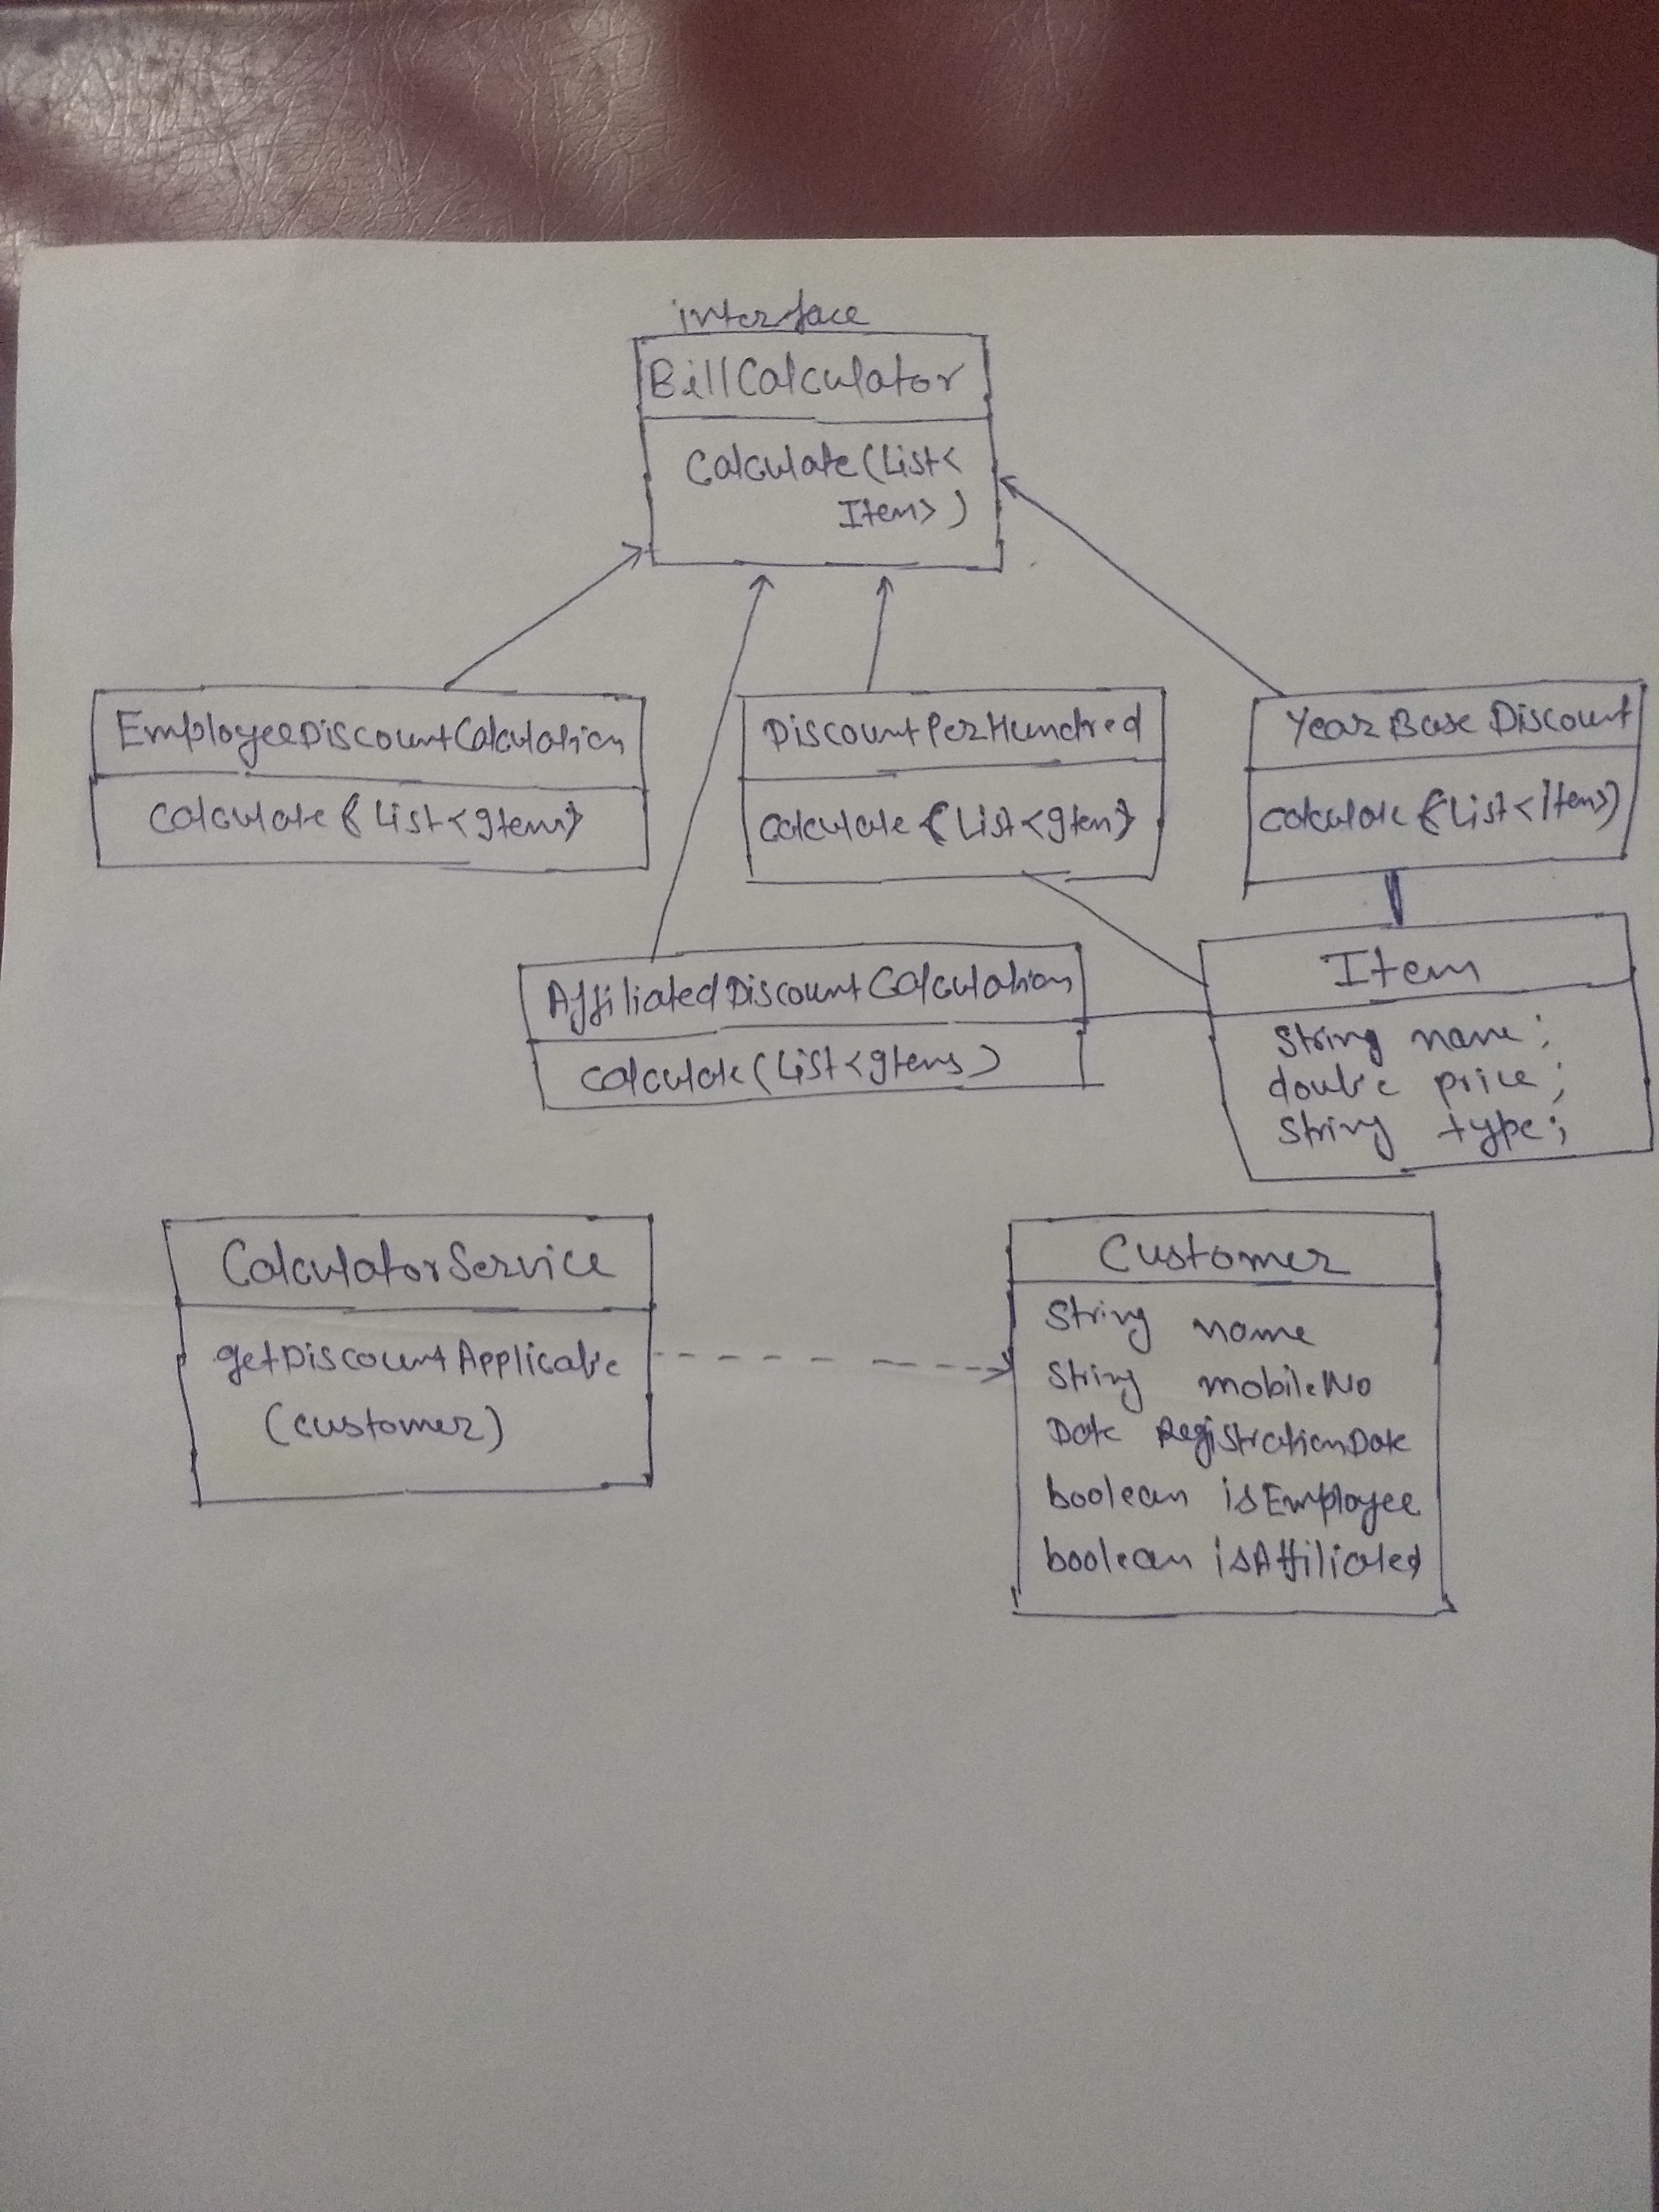 interface
BillCalculator
Calculate(List<
Item>)
EmployeeDiscountCalculation
Calculate(List<Item>)
DiscountPerHundred
Calculate(List<Item>)
Year Base Discount
Calculate(List<Item>)
AffiliatedDiscountCalculation
Calculate(List<Item>)
Item
String name;
double price;
String type;
CalculatorService
getDiscountApplicable
(customer)
Customer
String name
String mobileNo
Date RegistrationDate
boolean isEmployee
boolean isAffiliated